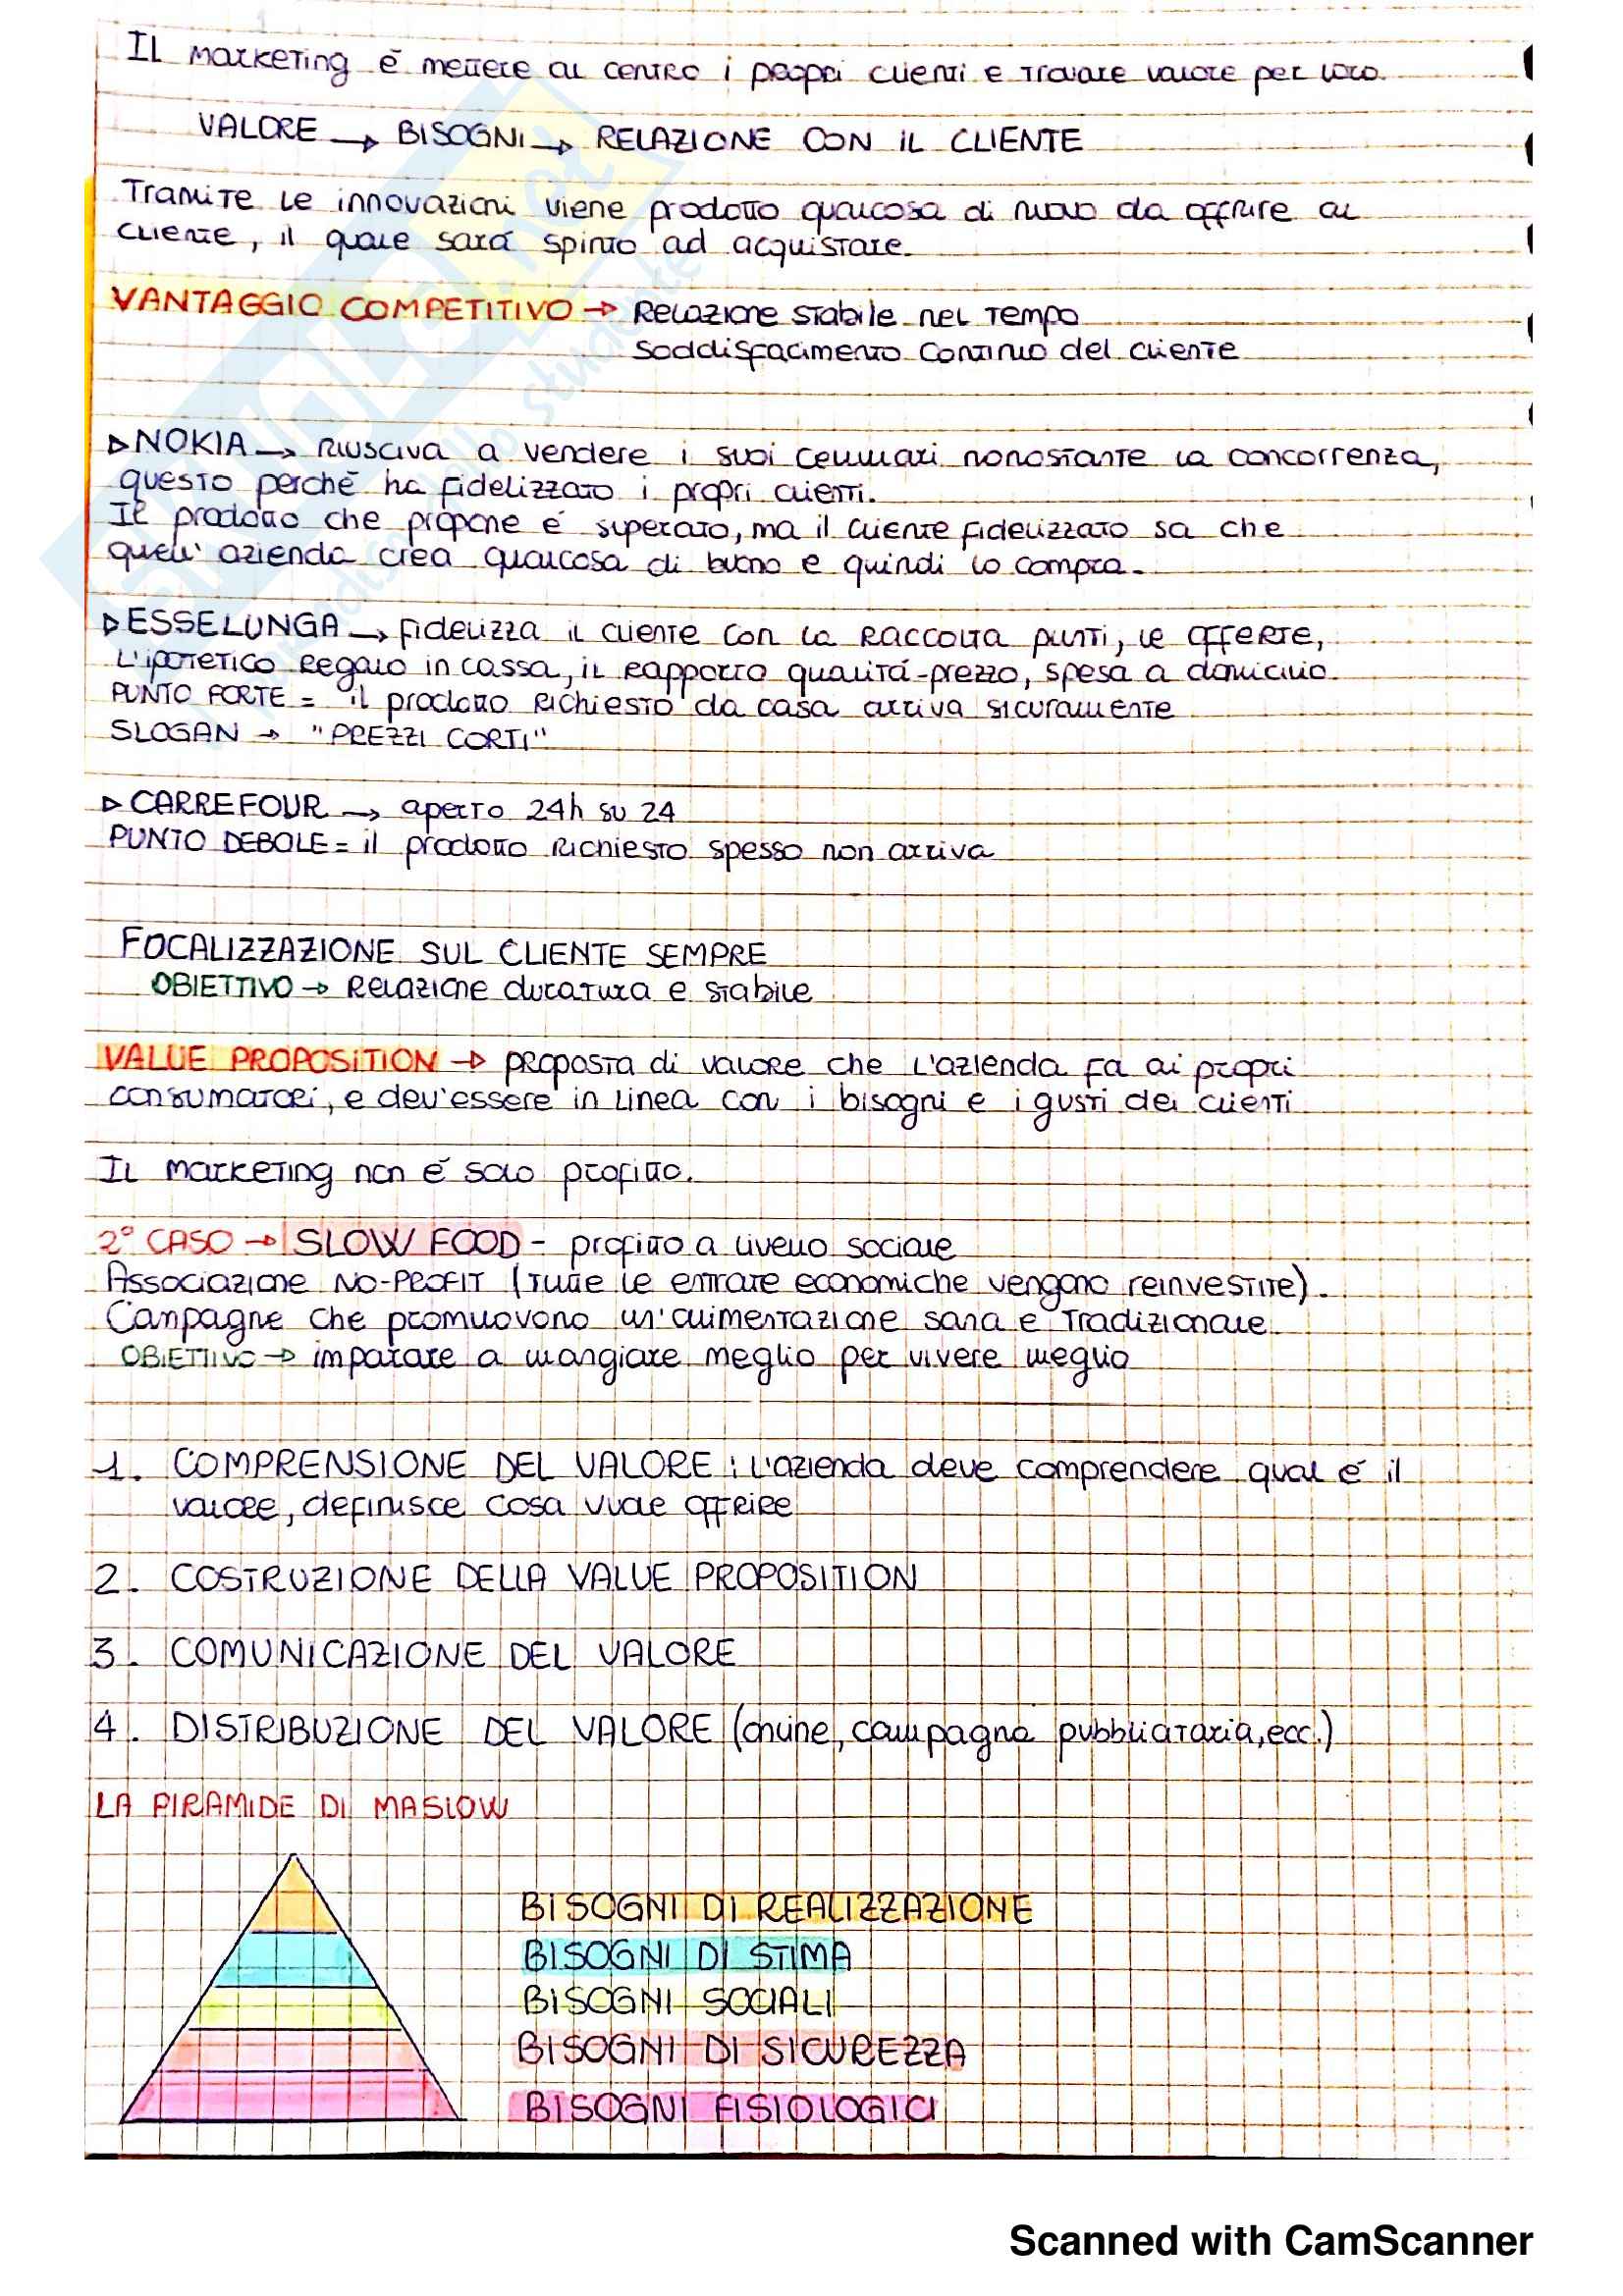 Il marketing é mettere al centro i propri clienti e trovare valore per loro.
VALORE → BISOGNI → RELAZIONE CON IL CLIENTE
Tramite le innovazioni viene prodotto qualcosa di nuovo da offrire al
cliente, il quale sará spinto ad acquistare.
VANTAGGIO COMPETITIVO → Relazione stabile nel tempo
Soddisfacimento continuo del cliente
▷ NOKIA → riusciva a vendere i suoi cellulari nonostante la concorrenza,
questo perché ha fidelizzato i propri clienti.
Il prodotto che propone é superato, ma il cliente fidelizzato sa che
quell'azienda crea qualcosa di buono e quindi lo compra.
▷ ESSELUNGA → fidelizza il cliente con la raccolta punti, le offerte,
l'ipotetico regalo in cassa, il rapporto qualitá-prezzo, spesa a domicilio.
PUNTO FORTE = il prodotto richiesto da casa arriva sicuramente
SLOGAN → "PREZZI CORTI"
▷ CARREFOUR → aperto 24h su 24
PUNTO DEBOLE = il prodotto richiesto spesso non arriva
FOCALIZZAZIONE SUL CLIENTE SEMPRE
OBIETTIVO → Relazione duratura e stabile
VALUE PROPOSITION → proposta di valore che l'azienda fa ai propri
consumatori, e dev'essere in linea con i bisogni e i gusti dei clienti
Il marketing non é solo profitto.
2° CASO → SLOW FOOD - profitto a livello sociale
Associazione NO-PROFIT (tutte le entrate economiche vengono reinvestite).
Campagne che promuovono un'alimentazione sana e tradizionale.
OBIETTIVO → imparare a mangiare meglio per vivere meglio
1. COMPRENSIONE DEL VALORE: l'azienda deve comprendere qual é il
valore, definisce cosa vuole offrire
2. COSTRUZIONE DELLA VALUE PROPOSITION
3. COMUNICAZIONE DEL VALORE
4. DISTRIBUZIONE DEL VALORE (online, campagna pubblicitaria, ecc.)
LA PIRAMIDE DI MASLOW
BISOGNI DI REALIZZAZIONE
BISOGNI DI STIMA
BISOGNI SOCIALI
BISOGNI DI SICUREZZA
BISOGNI FISIOLOGICI
Scanned with CamScanner